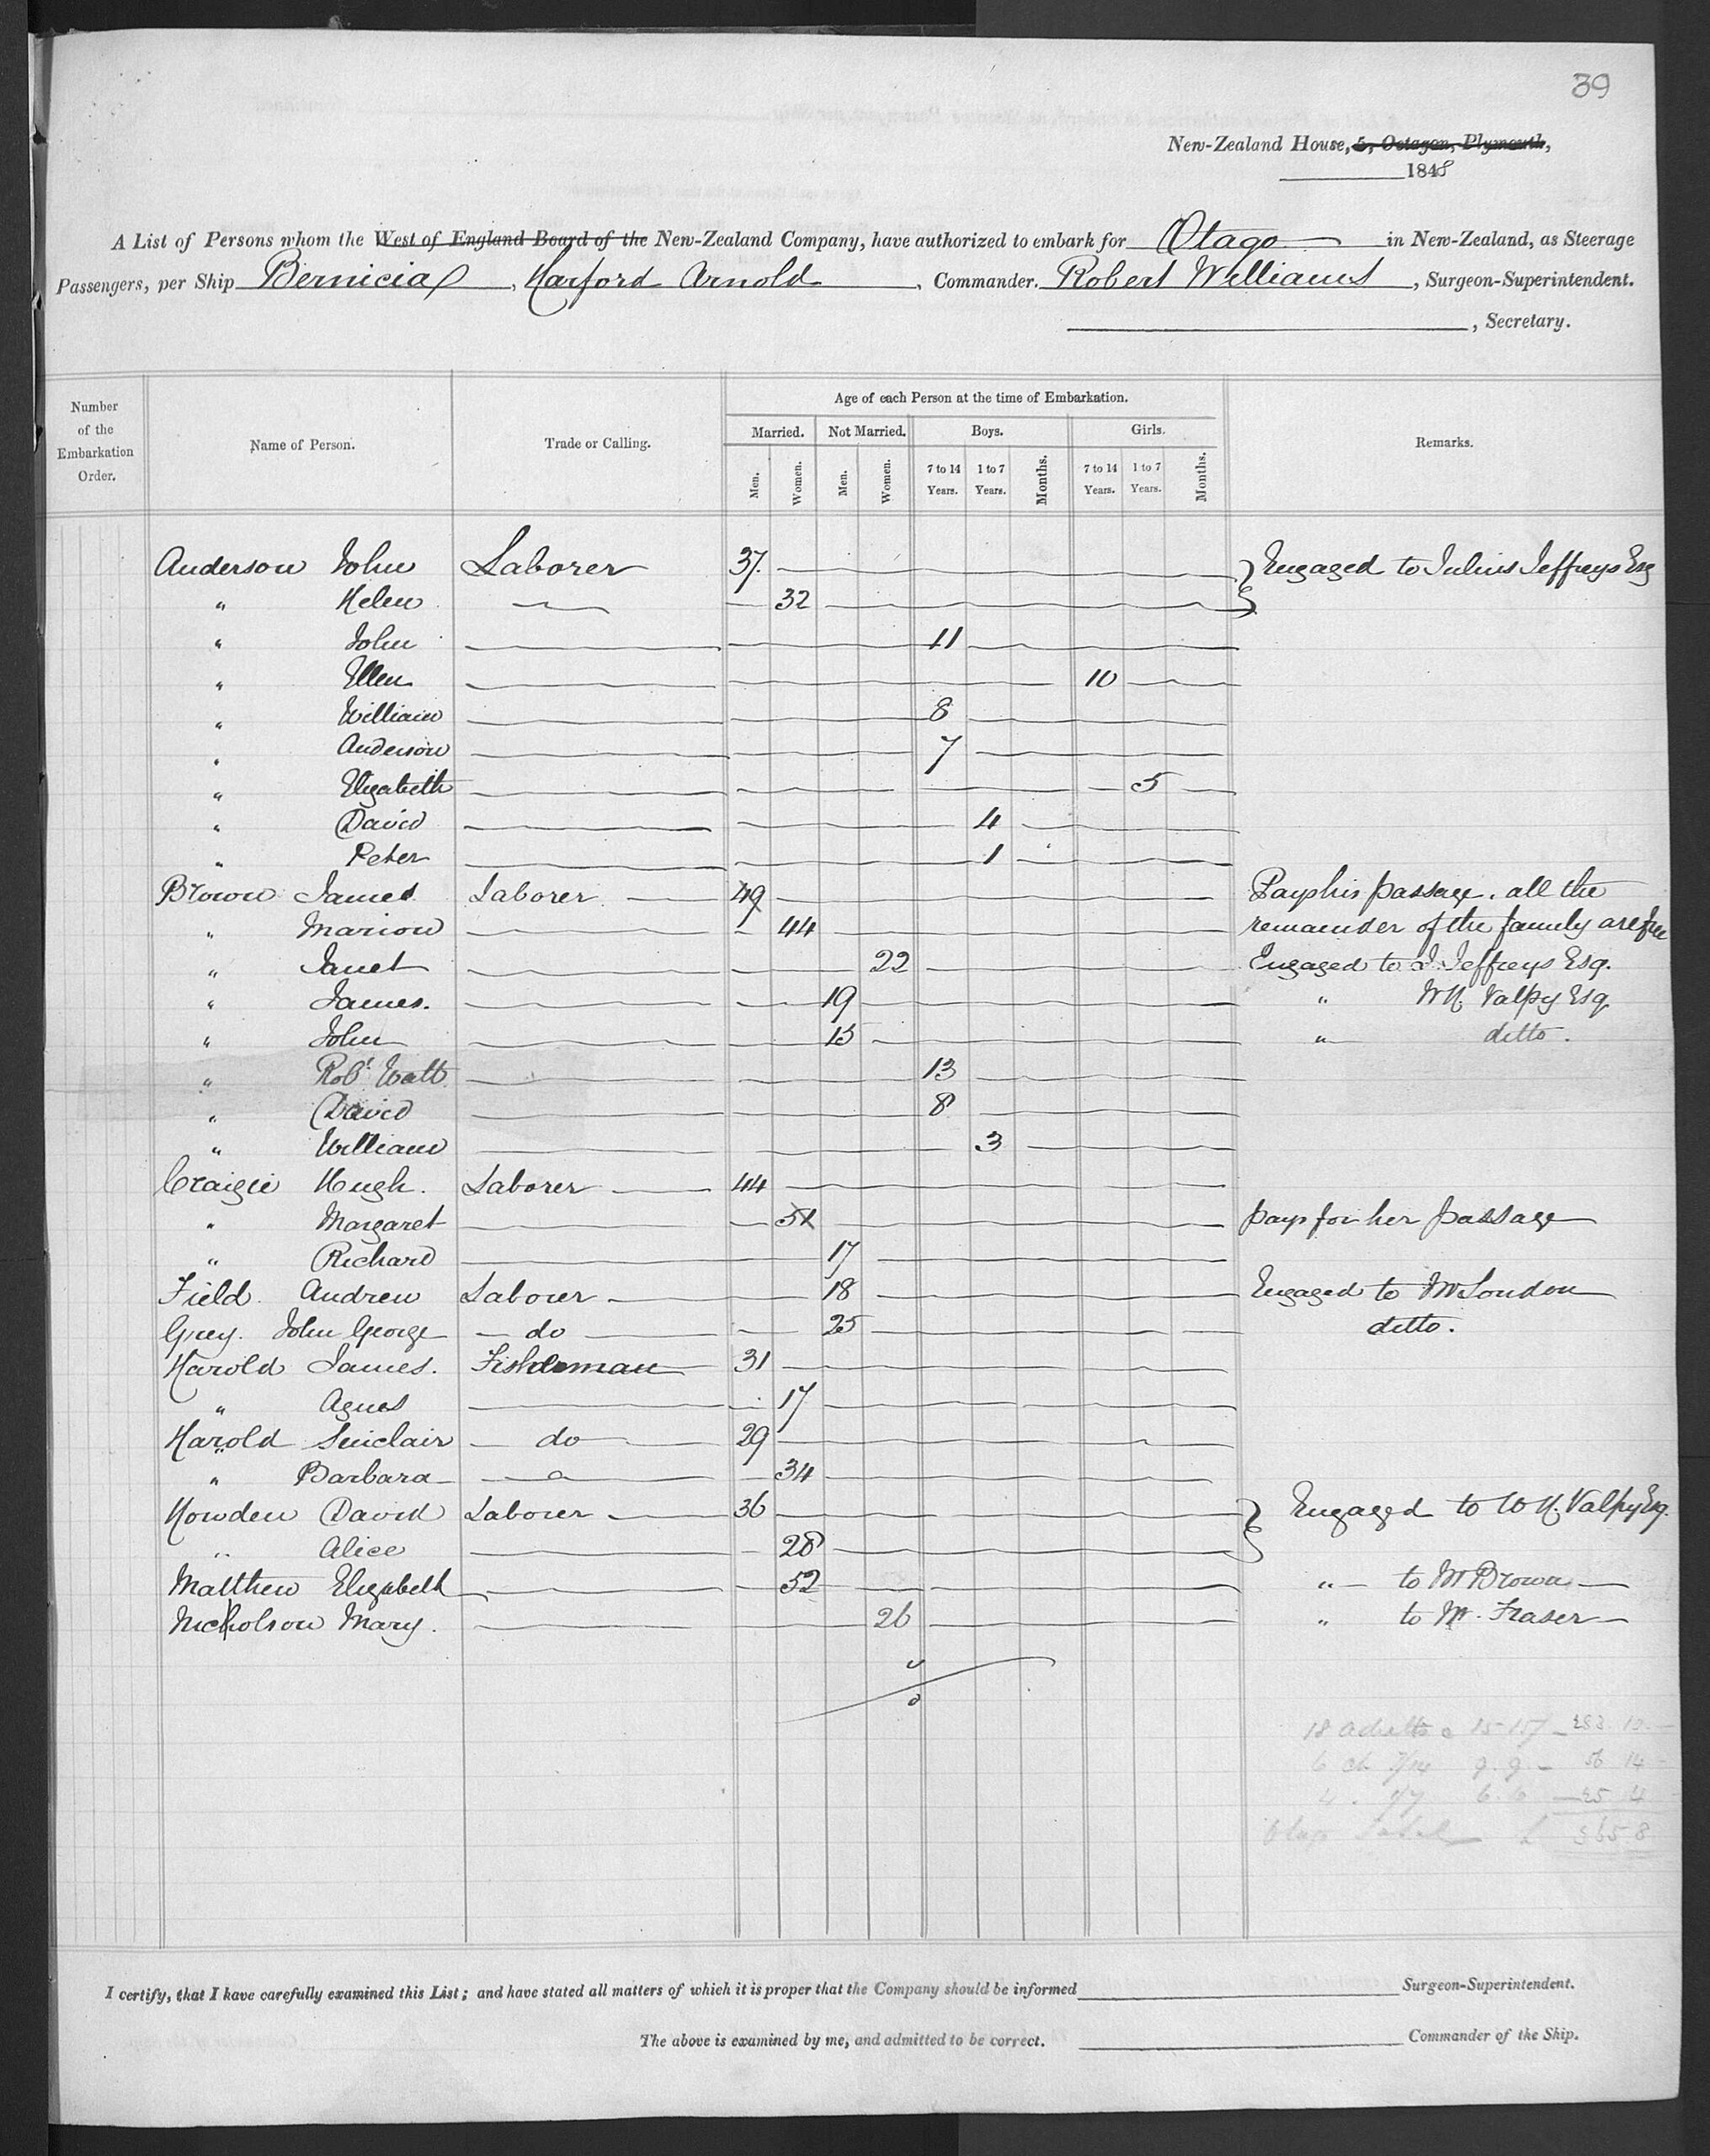 39
New-Zealand House, 5, Octagon, Plymouth,
1848
A List of Persons whom the West of England Board of the New-Zealand Company, have authorized to embark for Otago in New-Zealand, as Steerage
Passengers, per Ship Bernicia, Harford Arnold, Commander. Robert Williams, Surgeon-Superintendent.
, Secretary.
Number of the Embarkation Order. Name of Person. Trade or Calling. Age of each Person at the time of Embarkation. Remarks.
Married. Not Married. Boys. Girls.
Men. Women. Men. Women. 7 to 14 Years. 1 to 7 Years. Months. 7 to 14 Years. 1 to 7 Years. Months.
Anderson John Laborer 37. Engaged to Julius Jeffreys Esq
" Helen 32
" John 11
" Ellen 10
" William 8
" Anderson 7
" Elizabeth 5
" David 4
" Peter 1
Brown James Laborer 49 Pays his passage. all the
" Marion 44 remainder of the family are free
" Janet 22 Engaged to J. Jeffreys Esq.
" James. 19 " W H. Valpy Esq
" John 15 " ditto.
" Robt Watt 13
" David 8
" William 3
Craigie Hugh. Laborer 44
" Margaret 51 pays for her passage
" Richard 17
Field Andrew Laborer 18 Engaged to Mr London
Grey. John George do 25 ditto.
Harold James. Fisherman 31
" Agnes 17
Harold Sinclair do 29
" Barbara 34
Howden David Laborer 36 Engaged to W H. Valpy Esq.
" Alice 28
Matthew Elizabeth 52 " to Mr Brown
Nicholson Mary. 26 " to Mr. Fraser
18 adults @ 15-15/ 283. 10
6 ch 7/14 9.9 - 56 14
4 . 1/7 6.6 25 4
Total £ 365 8
I certify, that I have carefully examined this List; and have stated all matters of which it is proper that the Company should be informed Surgeon-Superintendent.
The above is examined by me, and admitted to be correct. Commander of the Ship.